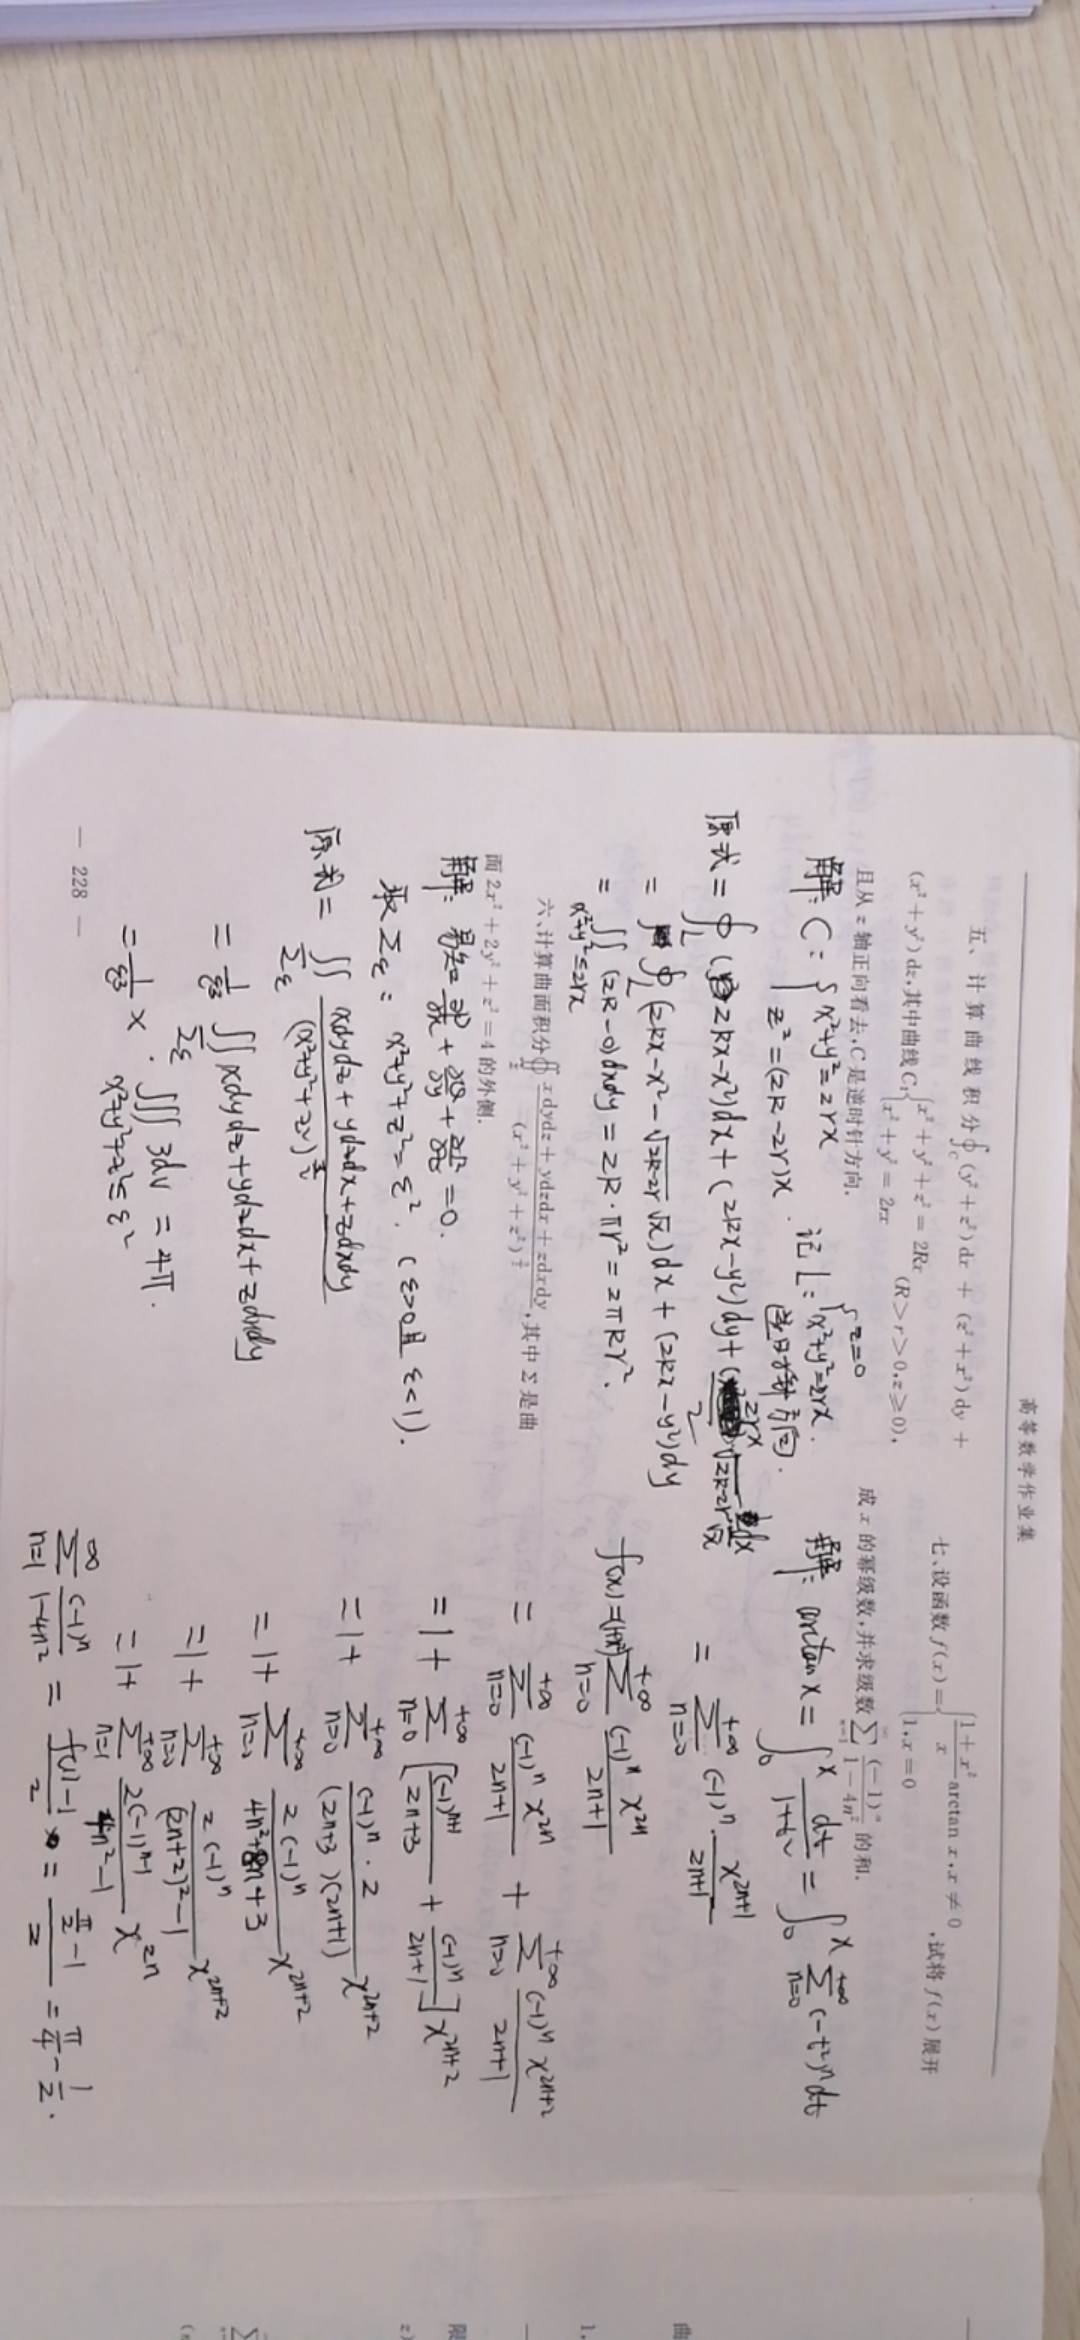 高等数学作业集
五、计算曲线积分∮_C (y²+z²)dx + (z²+x²)dy +
(x²+y²)dz,其中曲线C:{x²+y²+z²=2Rx
x²+y²=2rx (R>r>0,z≥0),
且从 z 轴正向看去,C 是逆时针方向.
解: C: {x²+y²=2rx
z²=(2R-2r)x. 记 L: {z=0
x²+y²=2rx.
逆时针方向.
原式 = ∮_L (2Rx-x²)dx + (2Rx-y²)dy + (2rx)/2 √(2R-2r) dx/√x
= ∮_L (2Rx-x²-√(2R-2r) √x)dx + (2Rx-y²)dy
= ∬_{x²+y²≤2rx} (2R-0)dxdy = 2R·πr² = 2πRr².
六、计算曲面积分∯_Σ (xdydz+ydzdx+zdxdy)/(x²+y²+z²)^{3/2},其中 Σ 是曲
面 2x²+2y²+z²=4 的外侧.
解: 易知 ∂P/∂x + ∂Q/∂y + ∂R/∂z = 0.
取 Σ_ε: x²+y²+z²=ε². (ε>0且 ε<1).
原式 = ∬_{Σ_ε} (xdydz+ydzdx+zdxdy)/(x²+y²+z²)^{3/2}
= 1/ε³ ∬_{Σ_ε} xdydz+ydzdx+zdxdy
= 1/ε³ × ∭_{x²+y²+z²≤ε²} 3dv = 4π.
— 228 —
七、设函数 f(x)={(1+x²)/x arctan x,x≠0
1,x=0 ,试将 f(x)展开
成 x 的幂级数,并求级数∑_{n=1}^{∞} (-1)ⁿ/(1-4n²) 的和.
解: arctan x = ∫_0^x dt/(1+t²) = ∫_0^x ∑_{n=0}^{+∞} (-t²)ⁿdt
= ∑_{n=0}^{+∞} (-1)ⁿ · x^{2n+1}/(2n+1)
f(x)=(1+x²)∑_{n=0}^{+∞} (-1)ⁿ x^{2n}/(2n+1)
= ∑_{n=0}^{+∞} (-1)ⁿ x^{2n}/(2n+1) + ∑_{n=0}^{+∞} (-1)ⁿ x^{2n+2}/(2n+1)
= 1 + ∑_{n=0}^{+∞} [(-1)^{n+1}/(2n+3) + (-1)ⁿ/(2n+1)] x^{2n+2}
= 1 + ∑_{n=0}^{+∞} (-1)ⁿ·2/((2n+3)(2n+1)) x^{2n+2}
= 1 + ∑_{n=0}^{+∞} 2(-1)ⁿ/(4n²+8n+3) x^{2n+2}
= 1 + ∑_{n=0}^{+∞} 2(-1)ⁿ/((2n+2)²-1) x^{2n+2}
= 1 + ∑_{n=1}^{+∞} 2(-1)^{n-1}/(4n²-1) x^{2n}
∑_{n=1}^{∞} (-1)ⁿ/(1-4n²) = (f(1)-1)/2 = (π/2-1)/2 = π/4 - 1/2.
曲
1,
限
z)